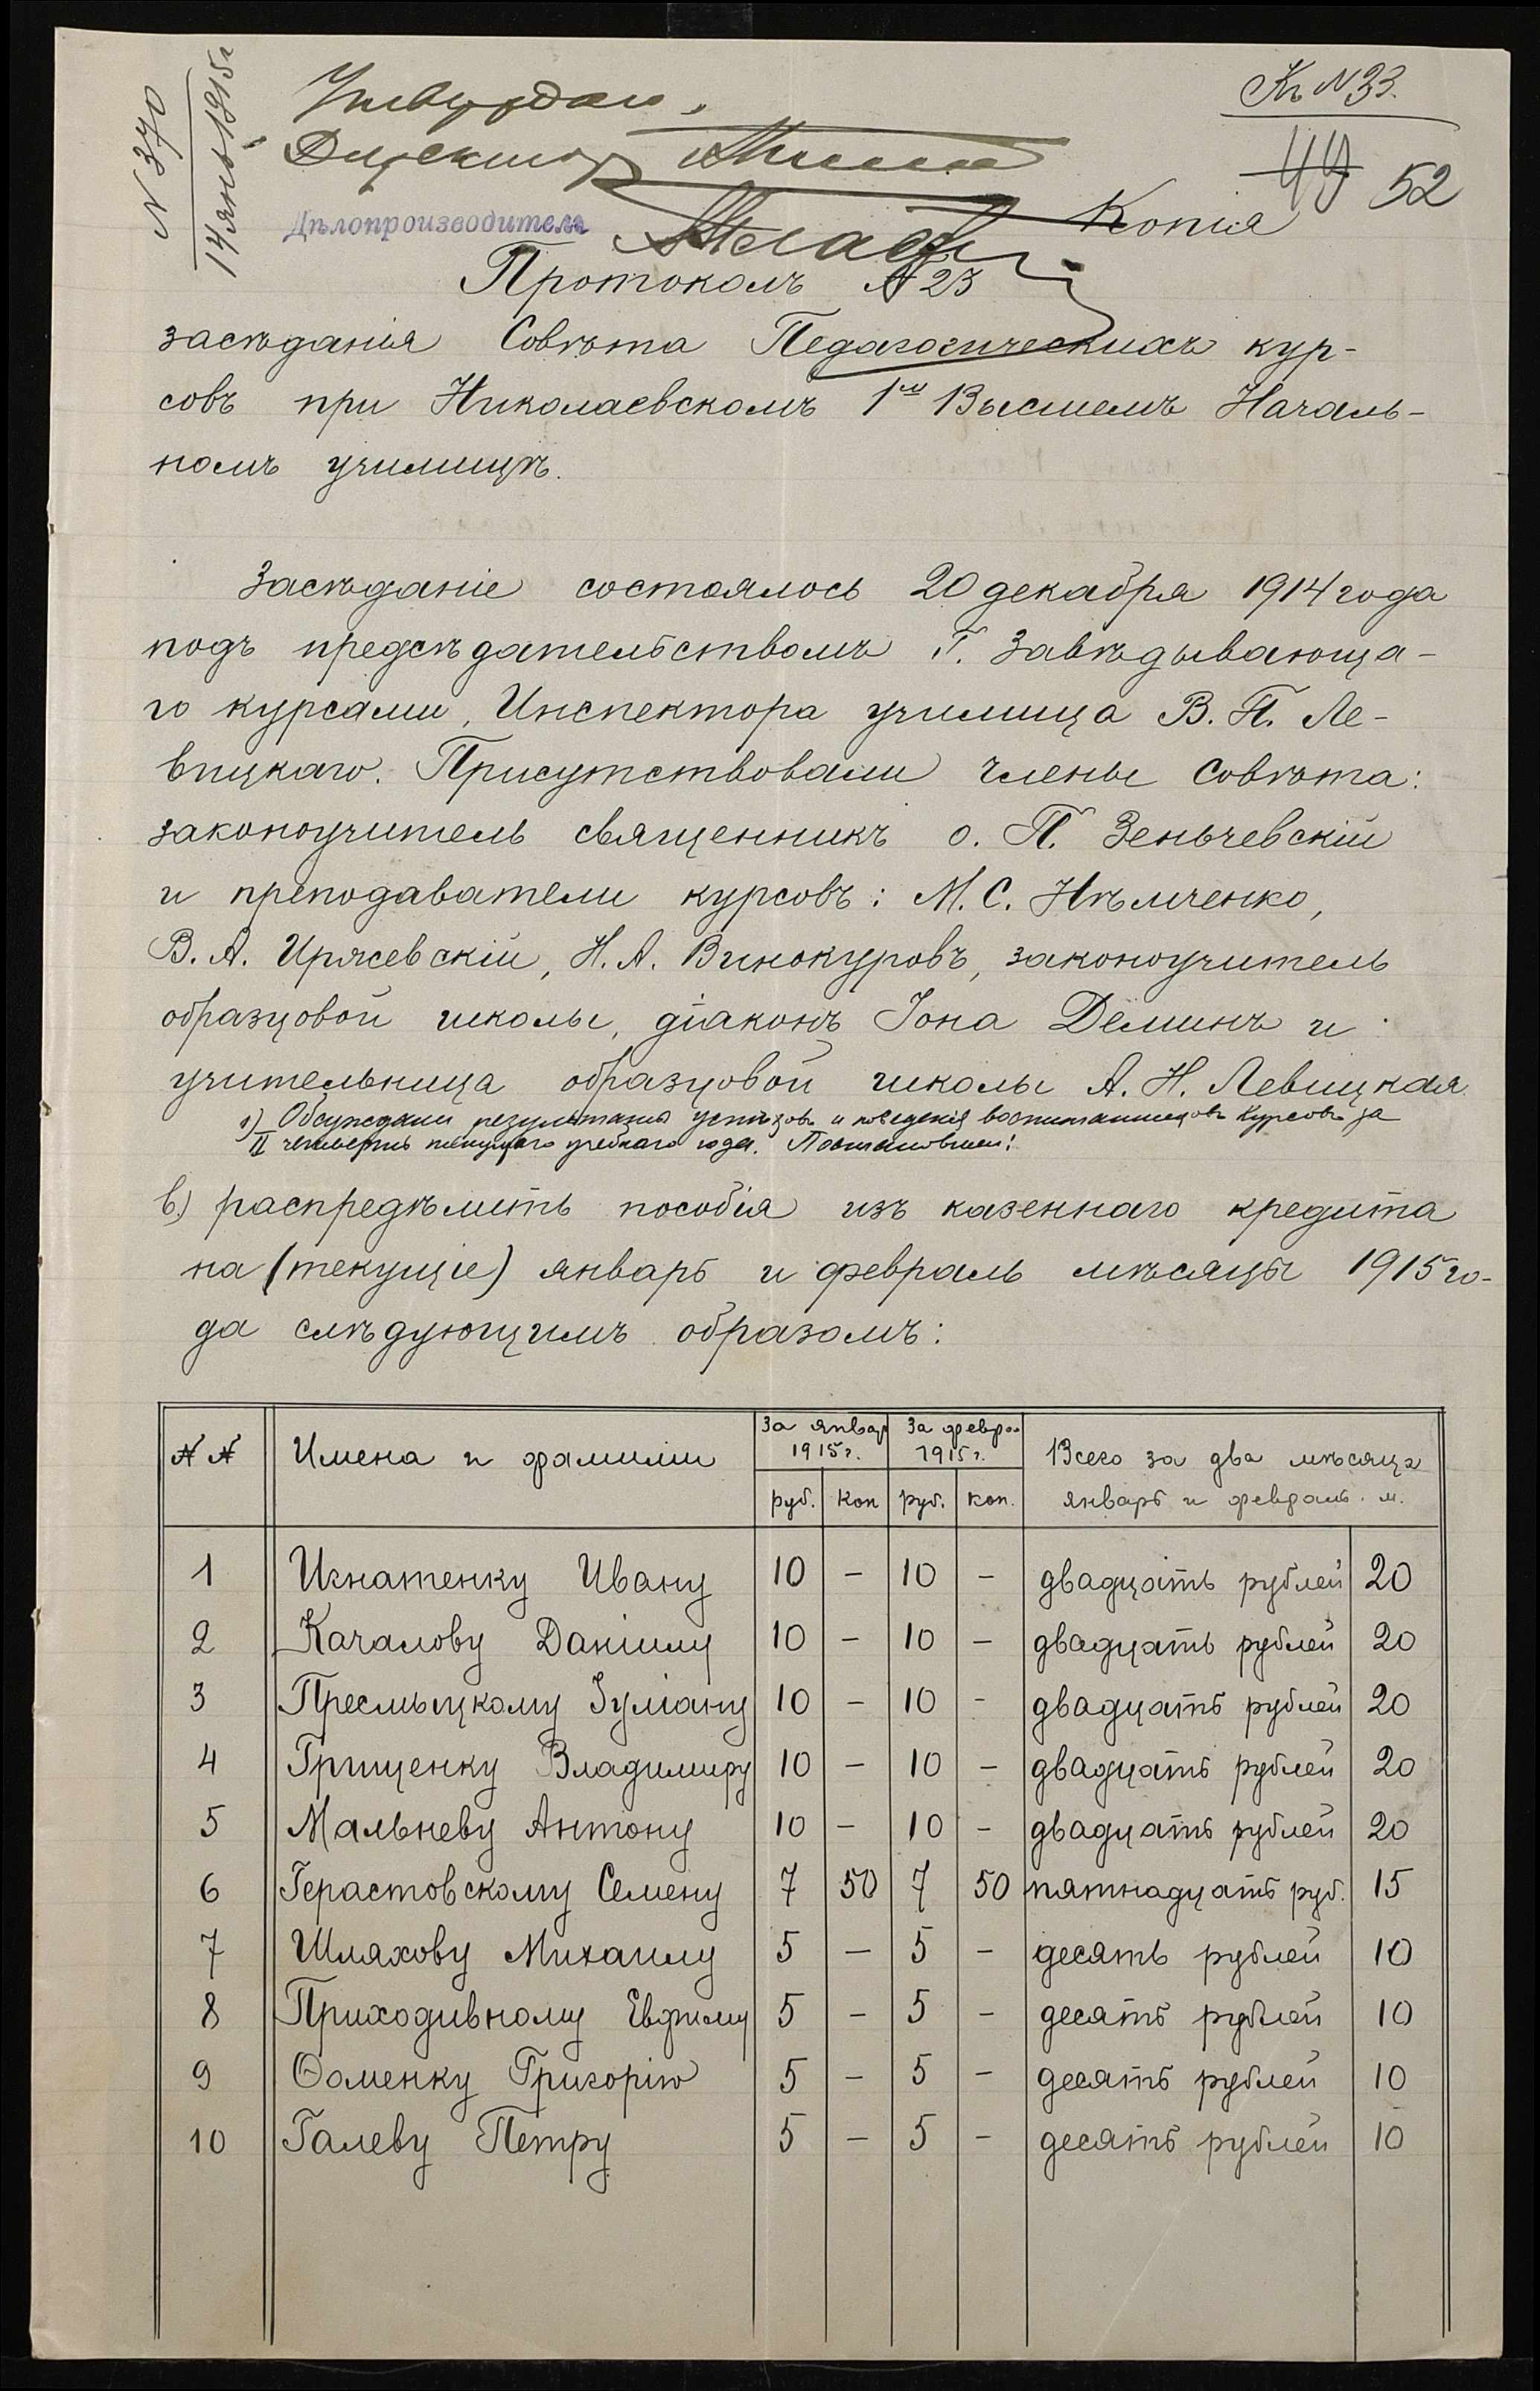 N 370
14 янв. 1915 г
Къ N 33.
Утверждаю.
49 52
Директоръ
Дѣлопроизводитель
Копія
Протоколъ № 23
засѣданія Совѣта Педагогическихъ кур-
совъ при Николаевскомъ 1мъ Высшемъ Началь-
номъ училищѣ.
Засѣданіе состоялось 20 декабря 1914 года
подъ предсѣдательствомъ Г. Завѣдывающа-
го курсами, Инспектора училища В. П. Ле-
вицкаго. Присутствовали члены Совѣта:
законоучитель священникъ о. П. Зеньчевскій
и преподаватели курсовъ: М. С. Нѣмченко,
В. А. Иржевскій, Н. А. Винокуровъ, законоучитель
образцовой школы, діаконъ Іона Деминъ и
учительница образцовой школы А. Н. Левицкая
1) Обсуждали результаты успѣховъ и поведенія воспитанниковъ Курсовъ за
II четверть текущаго учебнаго года. Постановили:
в) распредѣлить пособія изъ казеннаго кредита
на (текущіе) январь и февраль мѣсяцы 1915 го-
да слѣдующимъ образомъ:
№ № Имена и фамиліи За январ 1915 г. За февра. 1915 г. Всего за два мѣсяца
руб. коп руб. коп. январь и февраль. м.
1 Игнатенку Ивану 10 – 10 – двадцать рублей 20
2 Качалову Даніилу 10 – 10 – двадцать рублей 20
3 Пресмыцкому Іуліану 10 – 10 – двадцать рублей 20
4 Грищенку Владимиру 10 – 10 – двадцать рублей 20
5 Мальневу Антону 10 – 10 – двадцать рублей 20
6 Герастовскому Семену 7 50 7 50 пятнадцать руб. 15
7 Шляхову Михаилу 5 – 5 – десять рублей 10
8 Приходивному Евфиму 5 – 5 – десять рублей 10
9 Ѳоменку Григорію 5 – 5 – десять рублей 10
10 Галеву Петру 5 – 5 – десять рублей 10